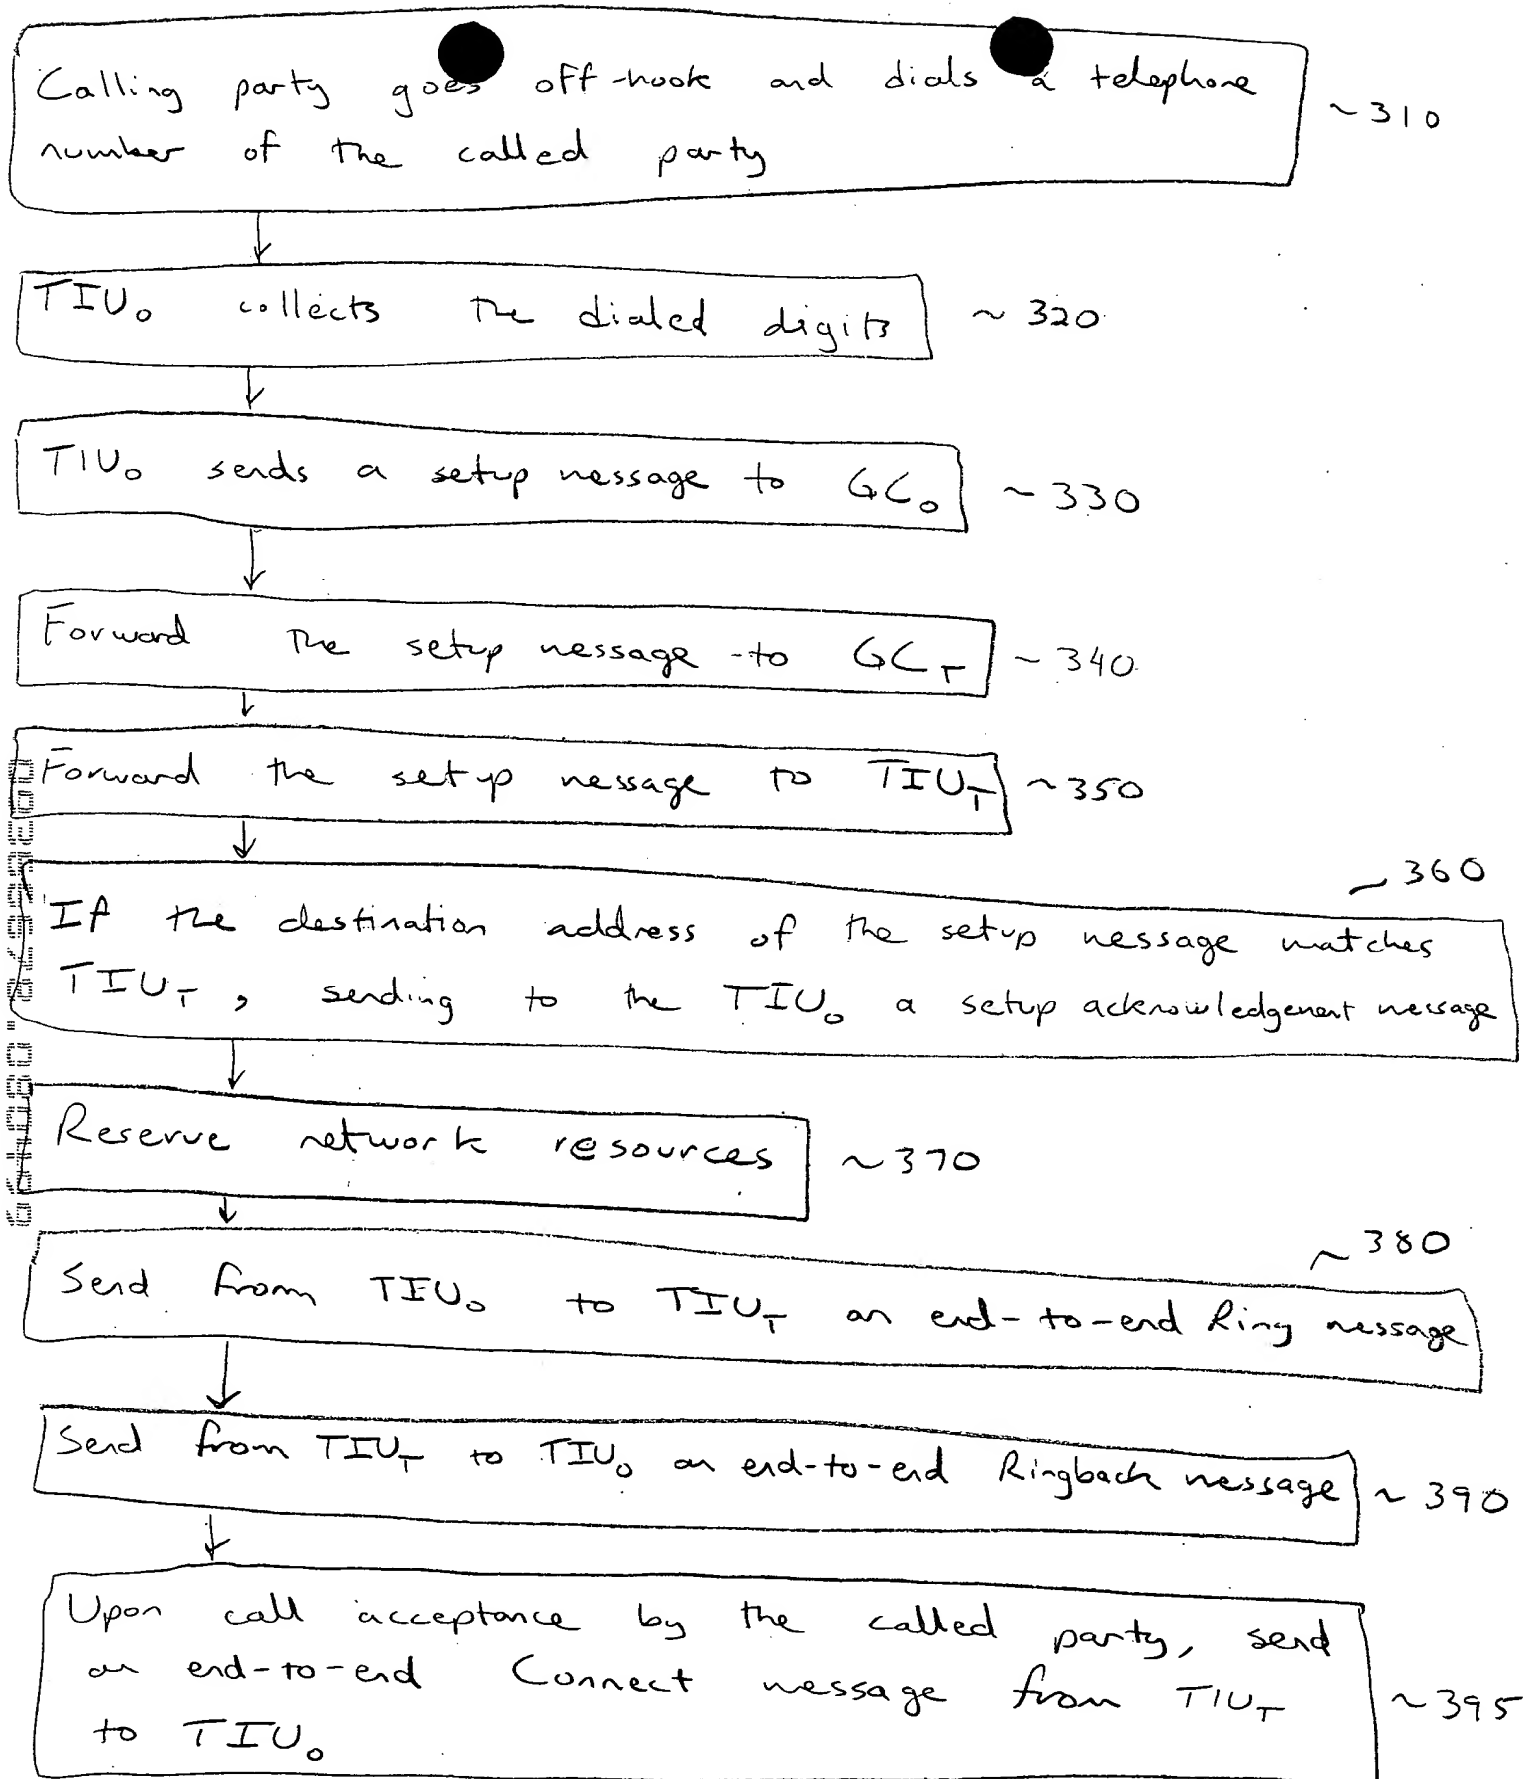 Calling party goes off-hook and dials a telephone ~310
number of the called party
TIU₀ collects the dialed digits ~320
TIU₀ sends a setup message to GC₀ ~330
Forward the setup message to GC_T ~340
Forward the setup message to TIU_T ~350
~360
If the destination address of the setup message matches
TIU_T, sending to the TIU₀ a setup acknowledgement message
Reserve network resources ~370
~380
Send from TIU₀ to TIU_T an end-to-end Ring message
Send from TIU_T to TIU₀ an end-to-end Ringback message ~390
Upon call acceptance by the called party, send
an end-to-end Connect message from TIU_T ~395
to TIU₀